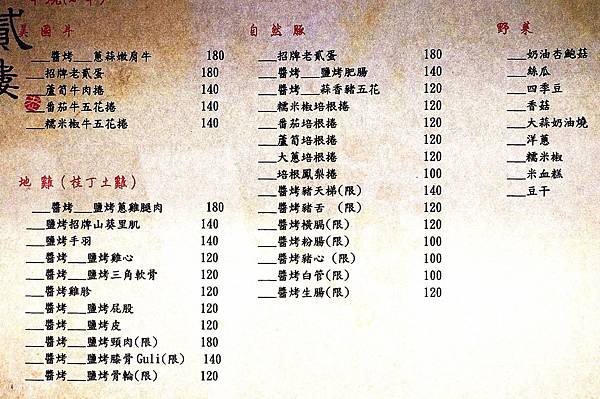 貳樓
美國牛
___醬烤___蔥蒜嫩肩牛 180
___招牌老貳蛋 180
___蘆筍牛肉捲 140
___番茄牛五花捲 140
___糯米椒牛五花捲 140
地雞(桂丁土雞)
___醬烤___鹽烤蔥雞腿肉 180
___鹽烤招牌山葵里肌 140
___鹽烤手羽 140
___醬烤___鹽烤雞心 120
___醬烤___鹽烤三角軟骨 120
___醬烤雞胗 120
___醬烤___鹽烤屁股 120
___醬烤___鹽烤皮 120
___醬烤___鹽烤頸肉(限) 180
___醬烤___鹽烤膝骨Guli(限) 140
___醬烤___鹽烤骨輪(限) 120
自然豚
___招牌老貳蛋 180
___醬烤___鹽烤肥腸 140
___醬烤___蒜香豬五花 120
___糯米椒培根捲 120
___番茄培根捲 120
___蘆筍培根捲 120
___大蔥培根捲 120
___培根鳳梨捲 100
___醬烤豬天梯(限) 140
___醬烤豬舌 (限) 120
___醬烤橫膈(限) 120
___醬烤粉腸(限) 100
___醬烤豬心 (限) 100
___醬烤白管(限) 100
___醬烤生腸(限) 120
野菜
___奶油杏鮑菇
___絲瓜
___四季豆
___香菇
___大蒜奶油燒
___洋蔥
___糯米椒
___米血糕
___豆干